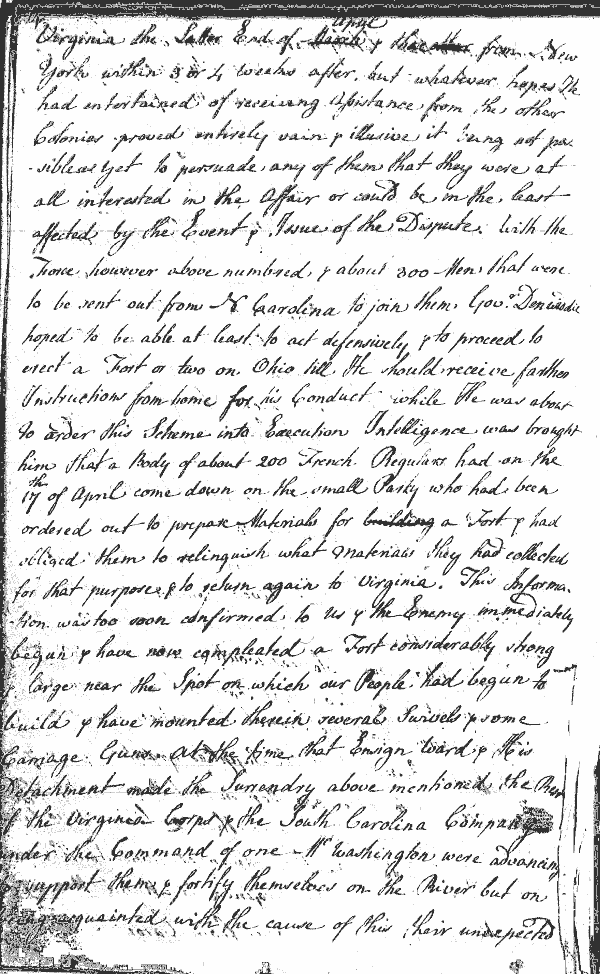 April
Virginia the Latter End of March & thereafter from New
York within 3 or 4 weeks after, but whatever hopes He
had entertained of receiving Assistance from the other
Colonies proved entirely vain & illusive it being not pos
-sible as yet to persuade any of them that they were at
all interested in the Affair or could be in the least
affected by the Event & Issue of the Dispute. With the
Force however above numbred, & about 300 Men that were
to be sent out from N Carolina to join them, Govr. Denwiddie
hoped to be able at least to act defensively & to proceed to
erect a Fort or two on Ohio till He should receive farther
Instructions from home for his Conduct while He was about
to order this Scheme into Execution Intelligence was brought
him that a Body of about 200 French Regulars had on the
17th of April come down on the small Party who had been
ordered out to prepare Materials for building a Fort & had
obliged them to relinquish what Materials they had collected
for that purpose & to return again to Virginia. This Informa-
tion was too soon confirmed to us & the Enemy immediately
begun & have now compleated a Fort considerably strong
& large near the Spot on which our People had begun to
build & have mounted therein several Swivels & some
Carriage Guns. At the time that Ensign Ward & His
Detachment made the Surrendry above mentioned the
of the Virginia Corps & the South Carolina Company
under the Command of one Mr Washington were advancing
to support them & fortify themselves on the River but on
being acquainted with the cause of this their unexpected